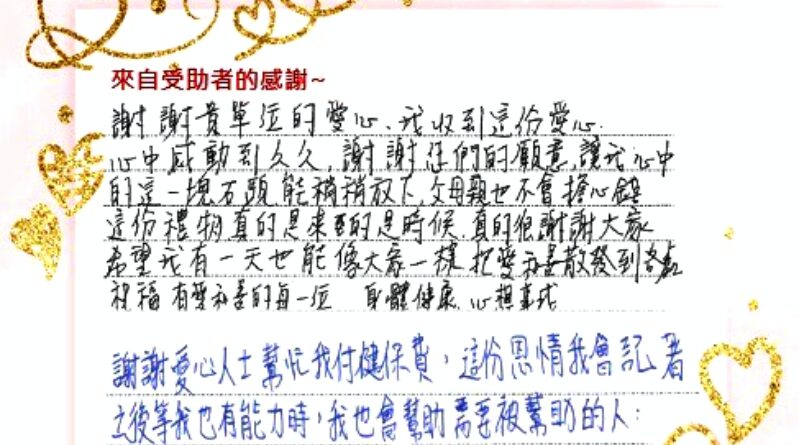 來自受助者的感謝~
謝謝貴單位的愛心、我收到這份愛心.
心中感動到久久,謝謝您們的願意,讓我心中
的這一塊石頭能稍稍放下,父母親也不會擔心
這份禮物真的是來的是時候,真的很謝謝大家
希望我有一天也能像大家一樣把愛和善散發到各處
祝福有愛和善的每一位 身體健康、心想事成
謝謝愛心人士幫忙我付健保費,這份恩情我會記著
之後等我也有能力時,我也會幫助需要被幫助的人: